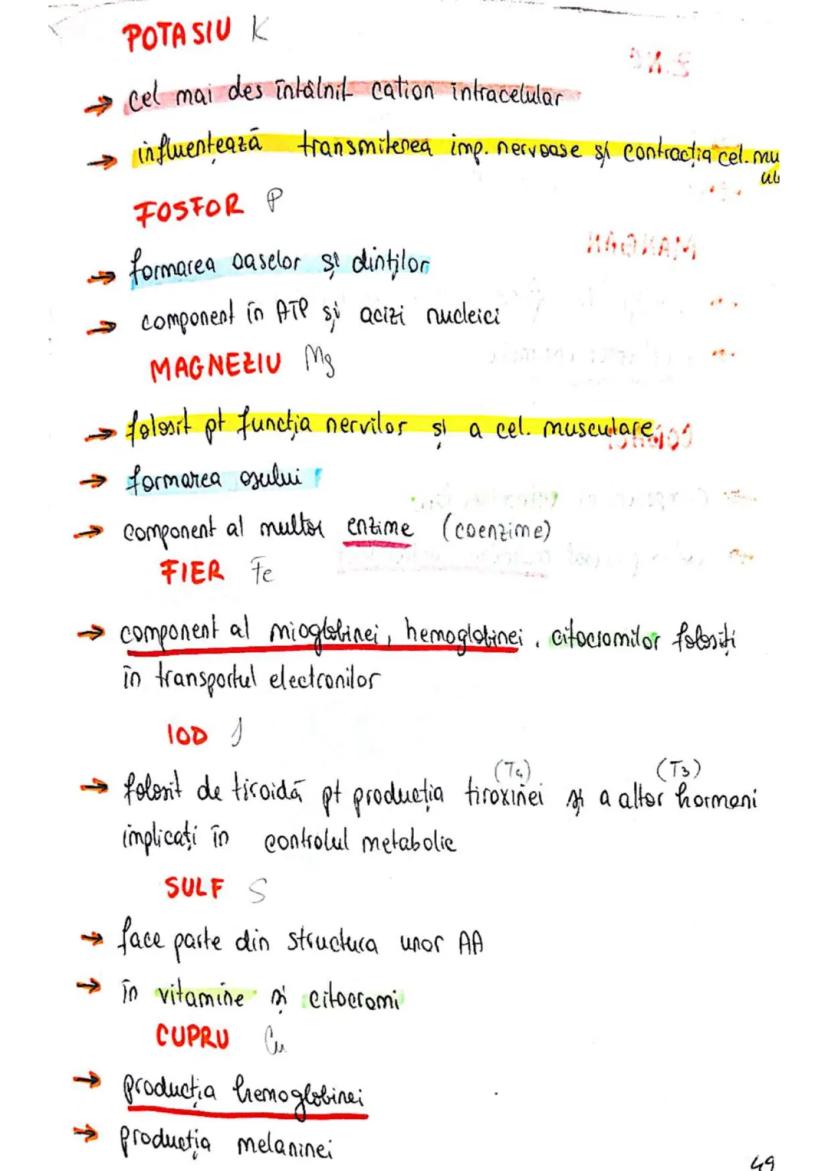 POTASIU K
→ cel mai des întâlnit cation intracelular
→ influențează transmiterea imp. nervoase și contracția cel. mu
FOSFOR P
→ formarea oaselor și dinților
→ component în ATP și acizi nucleici
MAGNEZIU Mg
→ folosit pt funcția nervilor și a cel. musculare
→ formarea osului
→ component al multor enzime (coenzime)
FIER Fe
→ component al mioglobinei, hemoglobinei, citocromilor folosiți
în transportul electronilor
IOD J
(T4) (T3)
→ folosit de tiroidă pt producția tiroxinei și a altor hormoni
implicați în controlul metabolic
SULF S
→ face parte din structura unor AA
→ în vitamine și citocromi
CUPRU Cu
→ producția hemoglobinei
→ producția melaninei
49